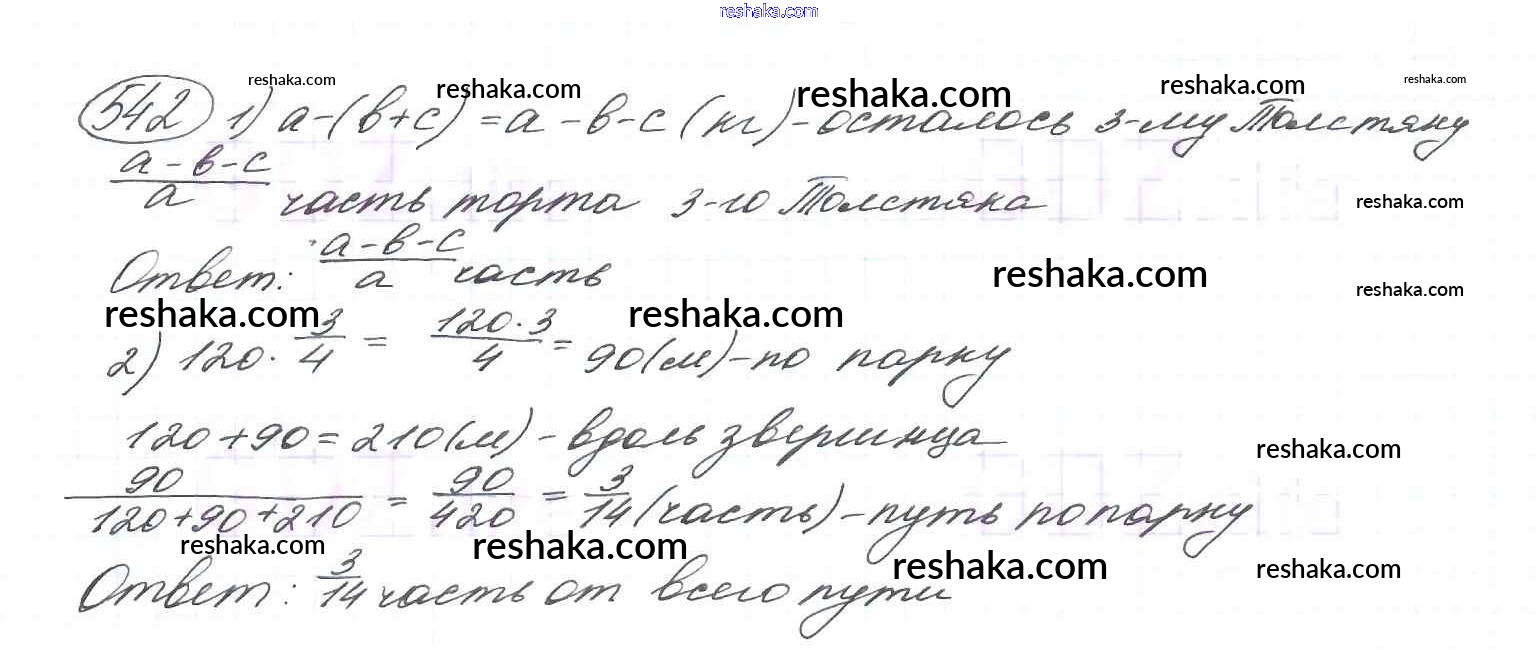 reshaka.com
reshaka.com reshaka.com reshaka.com reshaka.com reshaka.com
542 1) a-(в+с) = a-в-с (кг) - осталось 3-му Толстяку
(a-в-с)/a часть торта 3-го Толстяка
reshaka.com
Ответ: (a-в-с)/a часть
reshaka.com reshaka.com
reshaka.com reshaka.com
2) 120 · 3/4 = (120·3)/4 = 90(м) - по парку
120+90=210(м) - вдоль зверинца
reshaka.com
90/(120+90+210) = 90/420 = 3/14 (часть) - путь по парку
reshaka.com reshaka.com reshaka.com reshaka.com
Ответ: 3/14 часть от всего пути